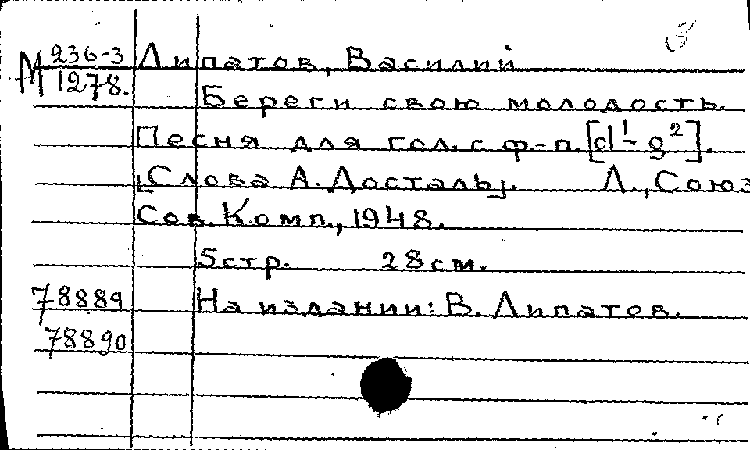 М 236-3 Липатов, Василий
1278.
Береги свою молодость.
Песня для гол. с ф-п. [d¹- g²].
[Слова А. Досталь]. Л., Союз
Сов. Комп., 1948.
5 стр. 28 см.
78889 На издании: В. Липатов.
78890